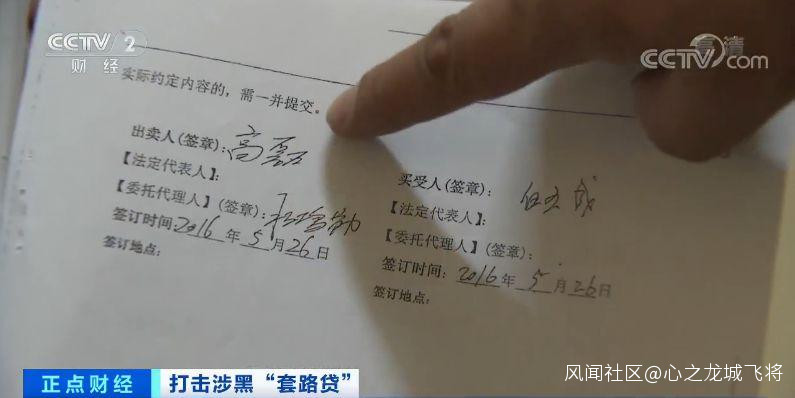 CCTV 2
财经
高清
CCTV.com
实际约定内容的，需一并提交。
出卖人(签章)：高磊
【法定代表人】：
【委托代理人】(签章)：
签订时间：2016年5月26日
签订地点：
买受人(签章)：
【法定代表人】：
【委托代理人】(签章)：
签订时间：2016年5月26日
签订地点：
正点财经
打击涉黑“套路贷”
风闻社区@心之龙城飞将